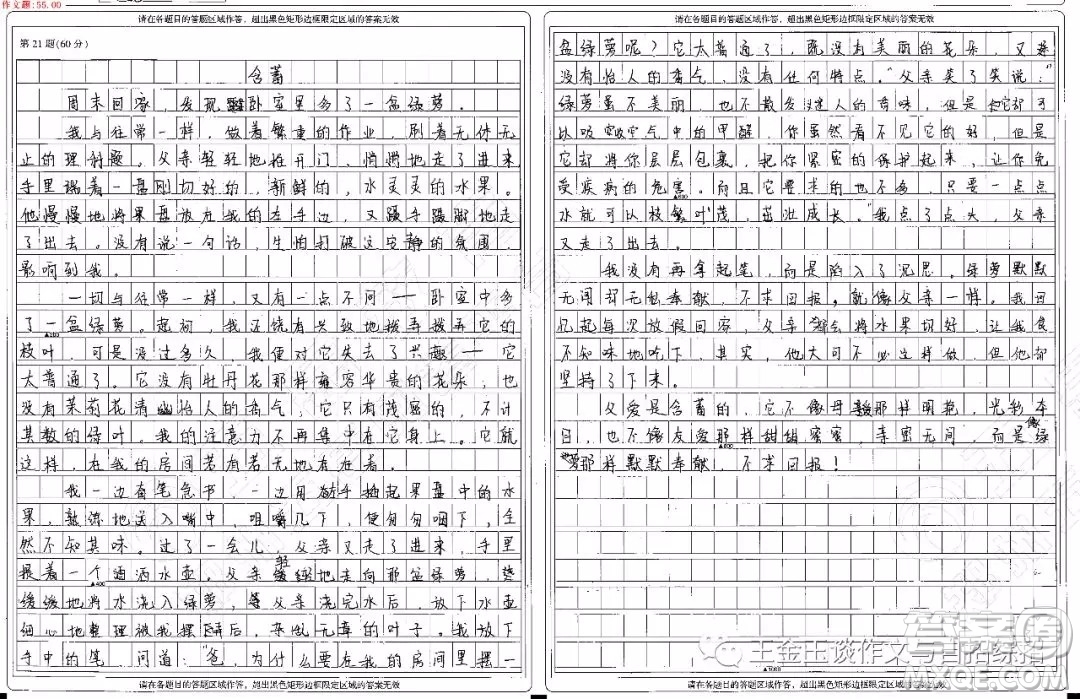 作文题:55.00
请在各题目的答题区域作答，超出黑色矩形边框限定区域的答案无效
第21题(60分)
含蓄
周末回家，发现卧室里多了一盆绿萝。
我与往常一样，做着繁重的作业，刷着无休无
止的理科题。父亲轻轻地推开门，悄悄地走了进来
手里端着一盘刚切好的，新鲜的，水灵灵的水果。
他慢慢地将果盘放在我的左手边，又蹑手蹑脚地走
了出去。没有说一句话，生怕打破这宁静的氛围，
影响到我。
一切与往常一样，又有一点不同——卧室中多
了一盆绿萝。起初，我还饶有兴致地拨弄拨弄它的
枝叶，可是没过多久，我便对它失去了兴趣——它
太普通了。它没有牡丹花那样雍容华贵的花朵，也
没有茉莉花清幽怡人的香气，它只有茂密的，不计
其数的绿叶。我的注意力不再集中在它身上。它就
这样，在我的房间若有若无地存在着。
我一边奋笔急书，一边用左手抽起果盘中的水
果，熟练地送入嘴中，咀嚼几下，便匆匆咽下，全
然不知其味。过了一会儿，父亲又走了进来，手里
提着一个洒水壶。父亲轻轻地走向那盆绿萝，
缓缓地将水浇入绿萝，父亲浇完水后，放下水壶
细心地整理被我摆弄后，杂乱无章的叶子。我放下
手中的笔，问道：“爸，为什么要在我的房间里摆一
请在各题目的答题区域作答，超出黑色矩形边框限定区域的答案无效
请在各题目的答题区域作答，超出黑色矩形边框限定区域的答案无效
盆绿萝呢？它太普通了，既没有美丽的花朵，又
没有怡人的香气，没有任何特点。”父亲笑了笑说：“
绿萝虽不美丽，也不散发迷人的香味，但是它却可
以吸收空气中的甲醛，你虽然看不见它的好，但是
它却将你层层包裹，把你紧密的保护起来，让你免
受疾病的危害。而且它要求的也不多，只要一点点
水就可以枝繁叶茂，茁壮成长。”我点了点头，父亲
又走了出去。
我没有再拿起笔，而是陷入了沉思。绿萝默默
无闻却无私奉献，不求回报，就像父亲一样。我回
忆起每次放假回家，父亲会将水果切好，让我食
不知味地吃下，其实，他大可不必这样做，但他却
坚持了下来。
父爱是含蓄的，它不像母爱那样明艳，光彩夺
目，也不像友爱那样甜甜蜜蜜，亲密无间，而是像绿
萝那样默默奉献，不求回报！
请在各题目的答题区域作答，超出黑色矩形边框限定区域的答案无效